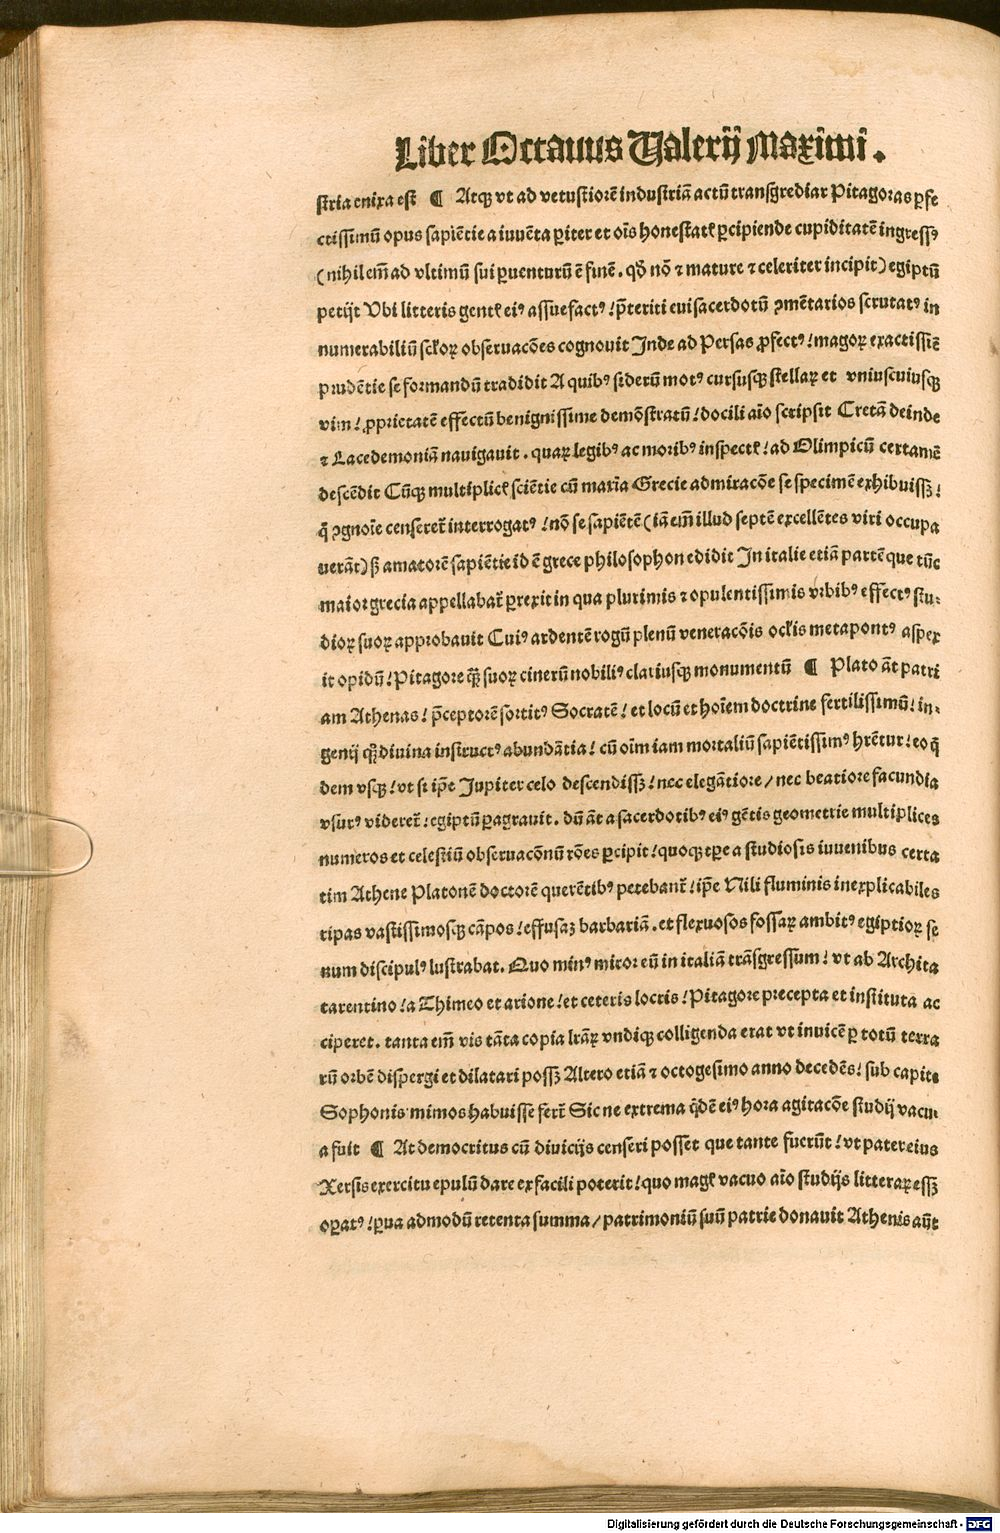 Liber Octauus Valerij Maximi .
stria enixa est ¶ Atqꝫ vt ad vetustiorē industriā actū transgrediar Pitagoras ꝑfe
ctissimū opus sapiētie a iuuēta ꝑiter et oīs honestatꝭ ꝑcipiende cupiditatē ingressꝰ
(nihil em̄ ad vltimū sui ꝑuenturū ē finē . qď nō ⁊ mature ⁊ celeriter incipit) egiptū
petijt Vbi litteris gentꝭ eiꝰ assuefactꝰ / p̄teriti eui sacerdotū ꝯmētarios scrutatꝰ in
numerabiliū scłoꝝ obseruacōes cognouit Inde ad Persas ꝓfectꝰ / magoꝝ exactissīe
prudētie se formandū tradidit A quibꝰ siderū motꝰ cursusqꝫ stellaꝝ et vniuscuiusqꝫ
vim / ꝓprietatē effectū benignissime demōstratū / docili aīo scripsit Cretā deinde
⁊ Lacedemoniā nauigauit . quaꝝ legibꝰ ac moribꝰ inspectꝭ / ad Olimpicū certamē
descēdit Cūqꝫ multiplicꝭ sciētie cū maxīa Grecie admiracōe se specimē exhibuissꝫ /
q̄ ꝯgnoīe censeret̄ interrogatꝰ / nō se sapiētē (iā em̄ illud septē excellētes viri occupa
uerāt) sꝫ amatorē sapiētie id ē grece philosophon edidit In italie etiā partē que tūc
maior grecia appellabat̄ ꝑrexit in qua plurimis ⁊ opulentissimis vrbibꝰ effectꝰ stu-
dioꝝ suoꝝ approbauit Cuiꝰ ardentē rogū plenū veneracōis ocłis metapontꝰ aspex
it opidū / Pitagore qꝫ̄ suoꝝ cinerū nobiliꝰ clariusqꝫ monumentū ¶ Plato āt patri
am Athenas / p̄ceptorē sortitꝰ Socratē / et locū et hoīem doctrine fertilissimū / in-
genij qꝫ diuina instructꝰ abundātia / cū oīm iam mortaliū sapiētissimꝰ hr̄etur / eo q̄
dem vsqꝫ / vt si ip̄e Jupiter celo descendissꝫ / nec elegātiore / nec beatiore facundia
vsurꝰ videret̄ / egiptū ꝑagrauit . dū āt a sacerdotibꝰ eiꝰ gētis geometrie multiplices
numeros et celestiū obseruacōnū rōes ꝑcipit / quoqꝫ tꝑe a studiosis iuuenibus certa
tim Athene Platonē doctorē querētibꝰ petebant̄ / ip̄e Nili fluminis inexplicabiles
ripas vastissimosqꝫ cāpos / effusaꝫ barbariā . et flexuosos fossaꝝ ambitꝰ egiptioꝝ se
num discipulꝰ lustrabat . Quo minꝰ miror eū in italiā trāsgressum / vt ab Archita
tarentino / a Thimeo et arione / et ceteris locris / Pitagore precepta et instituta ac
ciperet . tanta em̄ vis tāta copia lrāꝝ vndiqꝫ colligenda erat vt inuicē ꝑ totū terra
rū orbē dispergi et dilatari possꝫ Altero etiā ⁊ octogesimo anno decedēs / sub capite
Sophonis mimos habuisse fert̄ Sic ne extrema q̄dē eiꝰ hora agitacōe studij vacu
a fuit ¶ At democritus cū diuicijs censeri posset que tante fuerūt / vt pater eius
Xersis exercitu epulū dare ex facili poterit / quo magꝭ vacuo aīo studijs litteraꝝ essꝫ
oꝑatꝰ / ꝑua admodū retenta summa / patrimoniū suū patrie donauit Athenis aūt
Digitalisierung gefördert durch die Deutsche Forschungsgemeinschaft - DFG